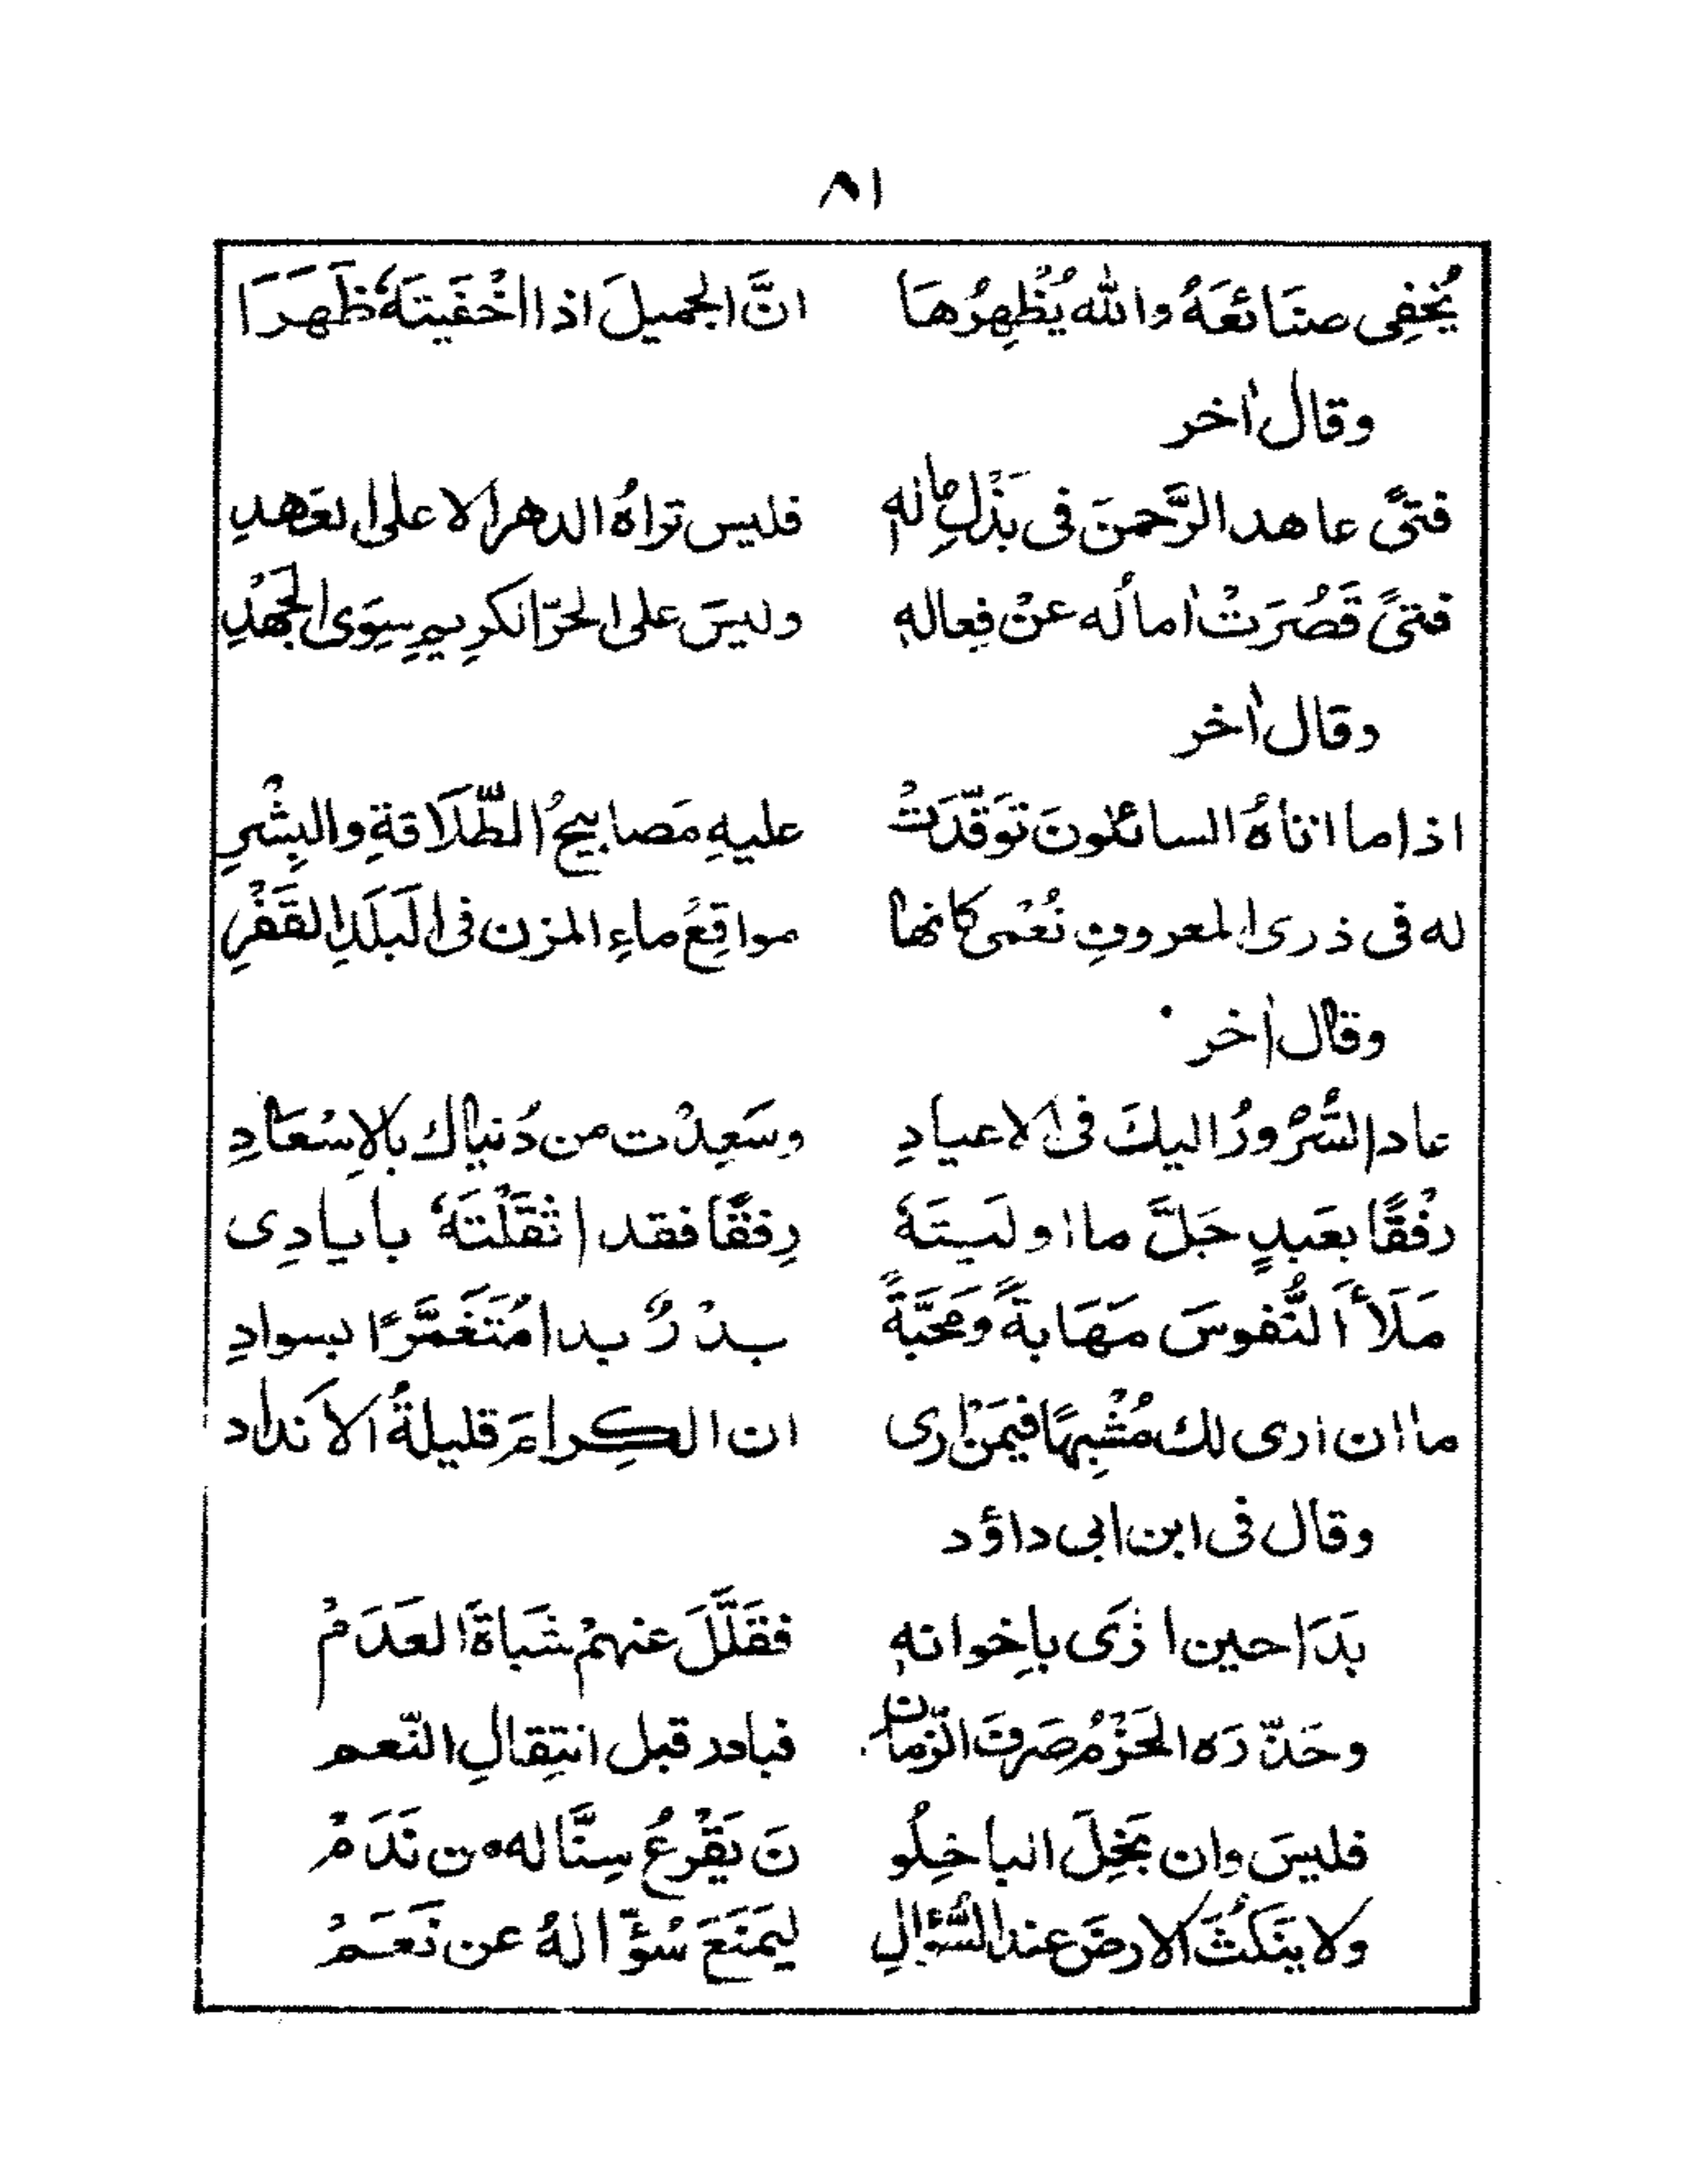 ٨١
يُخْفِى صنَائعَهُ والله يُظْهِرُهَا انَّ الجميلَ اذا اخْفَيتَهُ ظَهَرَا
وقال اٰخر
فتىً عاهد الرَّحمنَ فى بَذْلِ مالهِ فليس تراهُ الدهر الا على العَهدِ
فتىً قَصُرَتْ اٰمالُه عنْ فِعالهِ وليسَ على الحرّ الكرِيمِ سِوَى الجَهْدِ
وقال اٰخر
اذا ما اتاهُ السائلونَ تَوَقَّدَتْ عليهِ مَصابيحُ الطَّلَاقةِ والبِشْرِ
له فى ذرى المعروفِ نُعْمى كانها مواقِعُ ماءِ المزن فى البَلَدِ القَفْرِ
وقال اٰخر
عاد السُّرُورُ اليكَ فى الاعيادِ وسَعِدْت من دُنياك بالاِسْعَادِ
رفْقًا بعَبدٍ جَلَّ ما اوليتَهٗ رِفقًا فقد اثْقَلْتَهٗ بايادِى
مَلَأَ النُّفوسَ مَهَابةً ومَحَبَّةً بدْرٌ بدا مُتَغَمَّرًا بسوادِ
ما ان ارى لك مُشْبِهًا فيمَنْ ارى ان الكِرامَ قليلةُ الاَنداد
وقال فى ابن ابى داؤد
بَدَا حين اثرَى باِخوانهِ فقَلَّلَ عنهمْ شَبَاةَ العَدَمْ
وحَذّرَه الحَزْمُ صَرفَ الزّمان فبادر قبل انتِقالِ النّعم
فليسَ وان بَخِلَ الباخِلُو نَ يَقْرعُ سِنًّا له من نَدَمْ
ولا ينَكُثُ الارضَ عند السُّؤالِ ليَمنَعَ سُؤّالهُ عن نَعَمْ